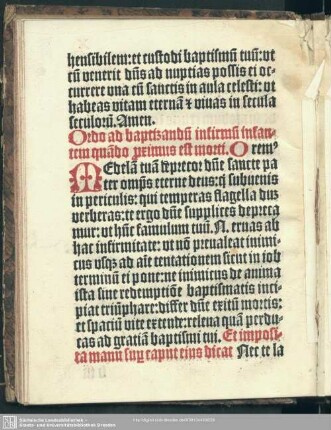 hensibilem: et custodi baptismū tuū: vt
cū venerit dn̄s ad nuptias possis ei oc-
currere vna cū sanctis in aula celesti: vt
habeas vitam eternā & viuas in secula
seculorū. Amen.
Ordo ad baptizandū infirmū infan-
tem quādo proximus est morti. Orem⁹
Medelā tuā deprecor dn̄e sancte pa
ter omp̄s eterne deus: q̄ subuenis
in periculis: qui temperas flagella dum
verberas: te ergo dn̄e supplices depreca
mur: vt hūc famulum tuū. N. eruas ab
hac infirmitate: vt nō preualeat inimi
cus vsq̄ ad aīe tentationem sicut in iob
terminū ei pone: ne inimicus de anima
ista sine redemptiōe baptismatis inci
piat triūphare: differ dn̄e exitū mortis:
et spaciū vite extende: releua quā perdu
cas ad gratiā baptismi tui. Et imposi
ta manu sup̄ caput eius dicat Nec te la